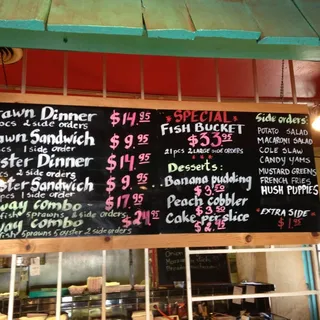 Dinner $14.95
2 side orders
Sandwich $9.95
1 side order
Dinner $14.95
2 side orders
Sandwich $9.95
1 side order
way combo $17.95
fish 5 prawns & side orders
way combo $24.95
fish 5 prawns 5 oyster 2 side orders
*SPECIAL*
FISH BUCKET
$33.95
21 pcs 2 LARGE SIDE ORDERS
Desserts:
Banana pudding
$3.50
Peach cobbler
$3.50
Cake per slice
$2.95
Side orders:
POTATO SALAD
MACARONI SALAD
COLE SLAW
CANDY YAMS
MUSTARD GREENS
FRENCH FRIES
HUSH PUPPIES
*EXTRA SIDE*
$1.95